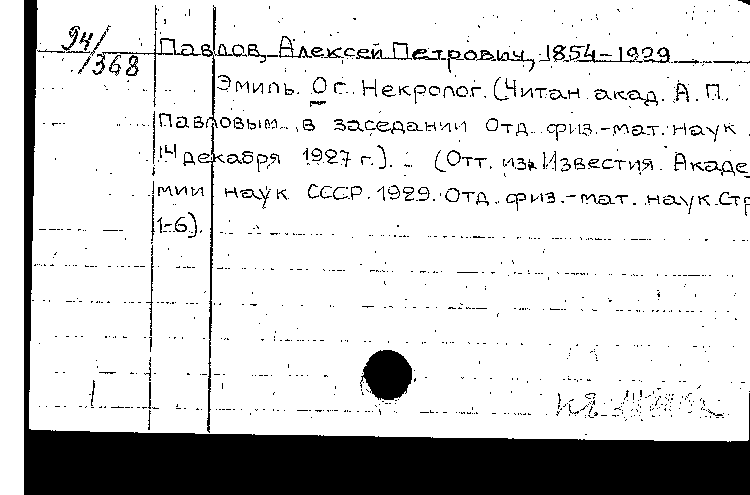 94/368
Павлов, Алексей Петрович, 1854-1929
Эмиль Ог. Некролог. (Читан акад. А.П.
Павловым в заседании Отд. физ.-мат. наук
14 декабря 1927 г.). - (Отт. из Известия Акаде
мии наук СССР. 1929. Отд. физ.-мат. наук. Стр
1-6).